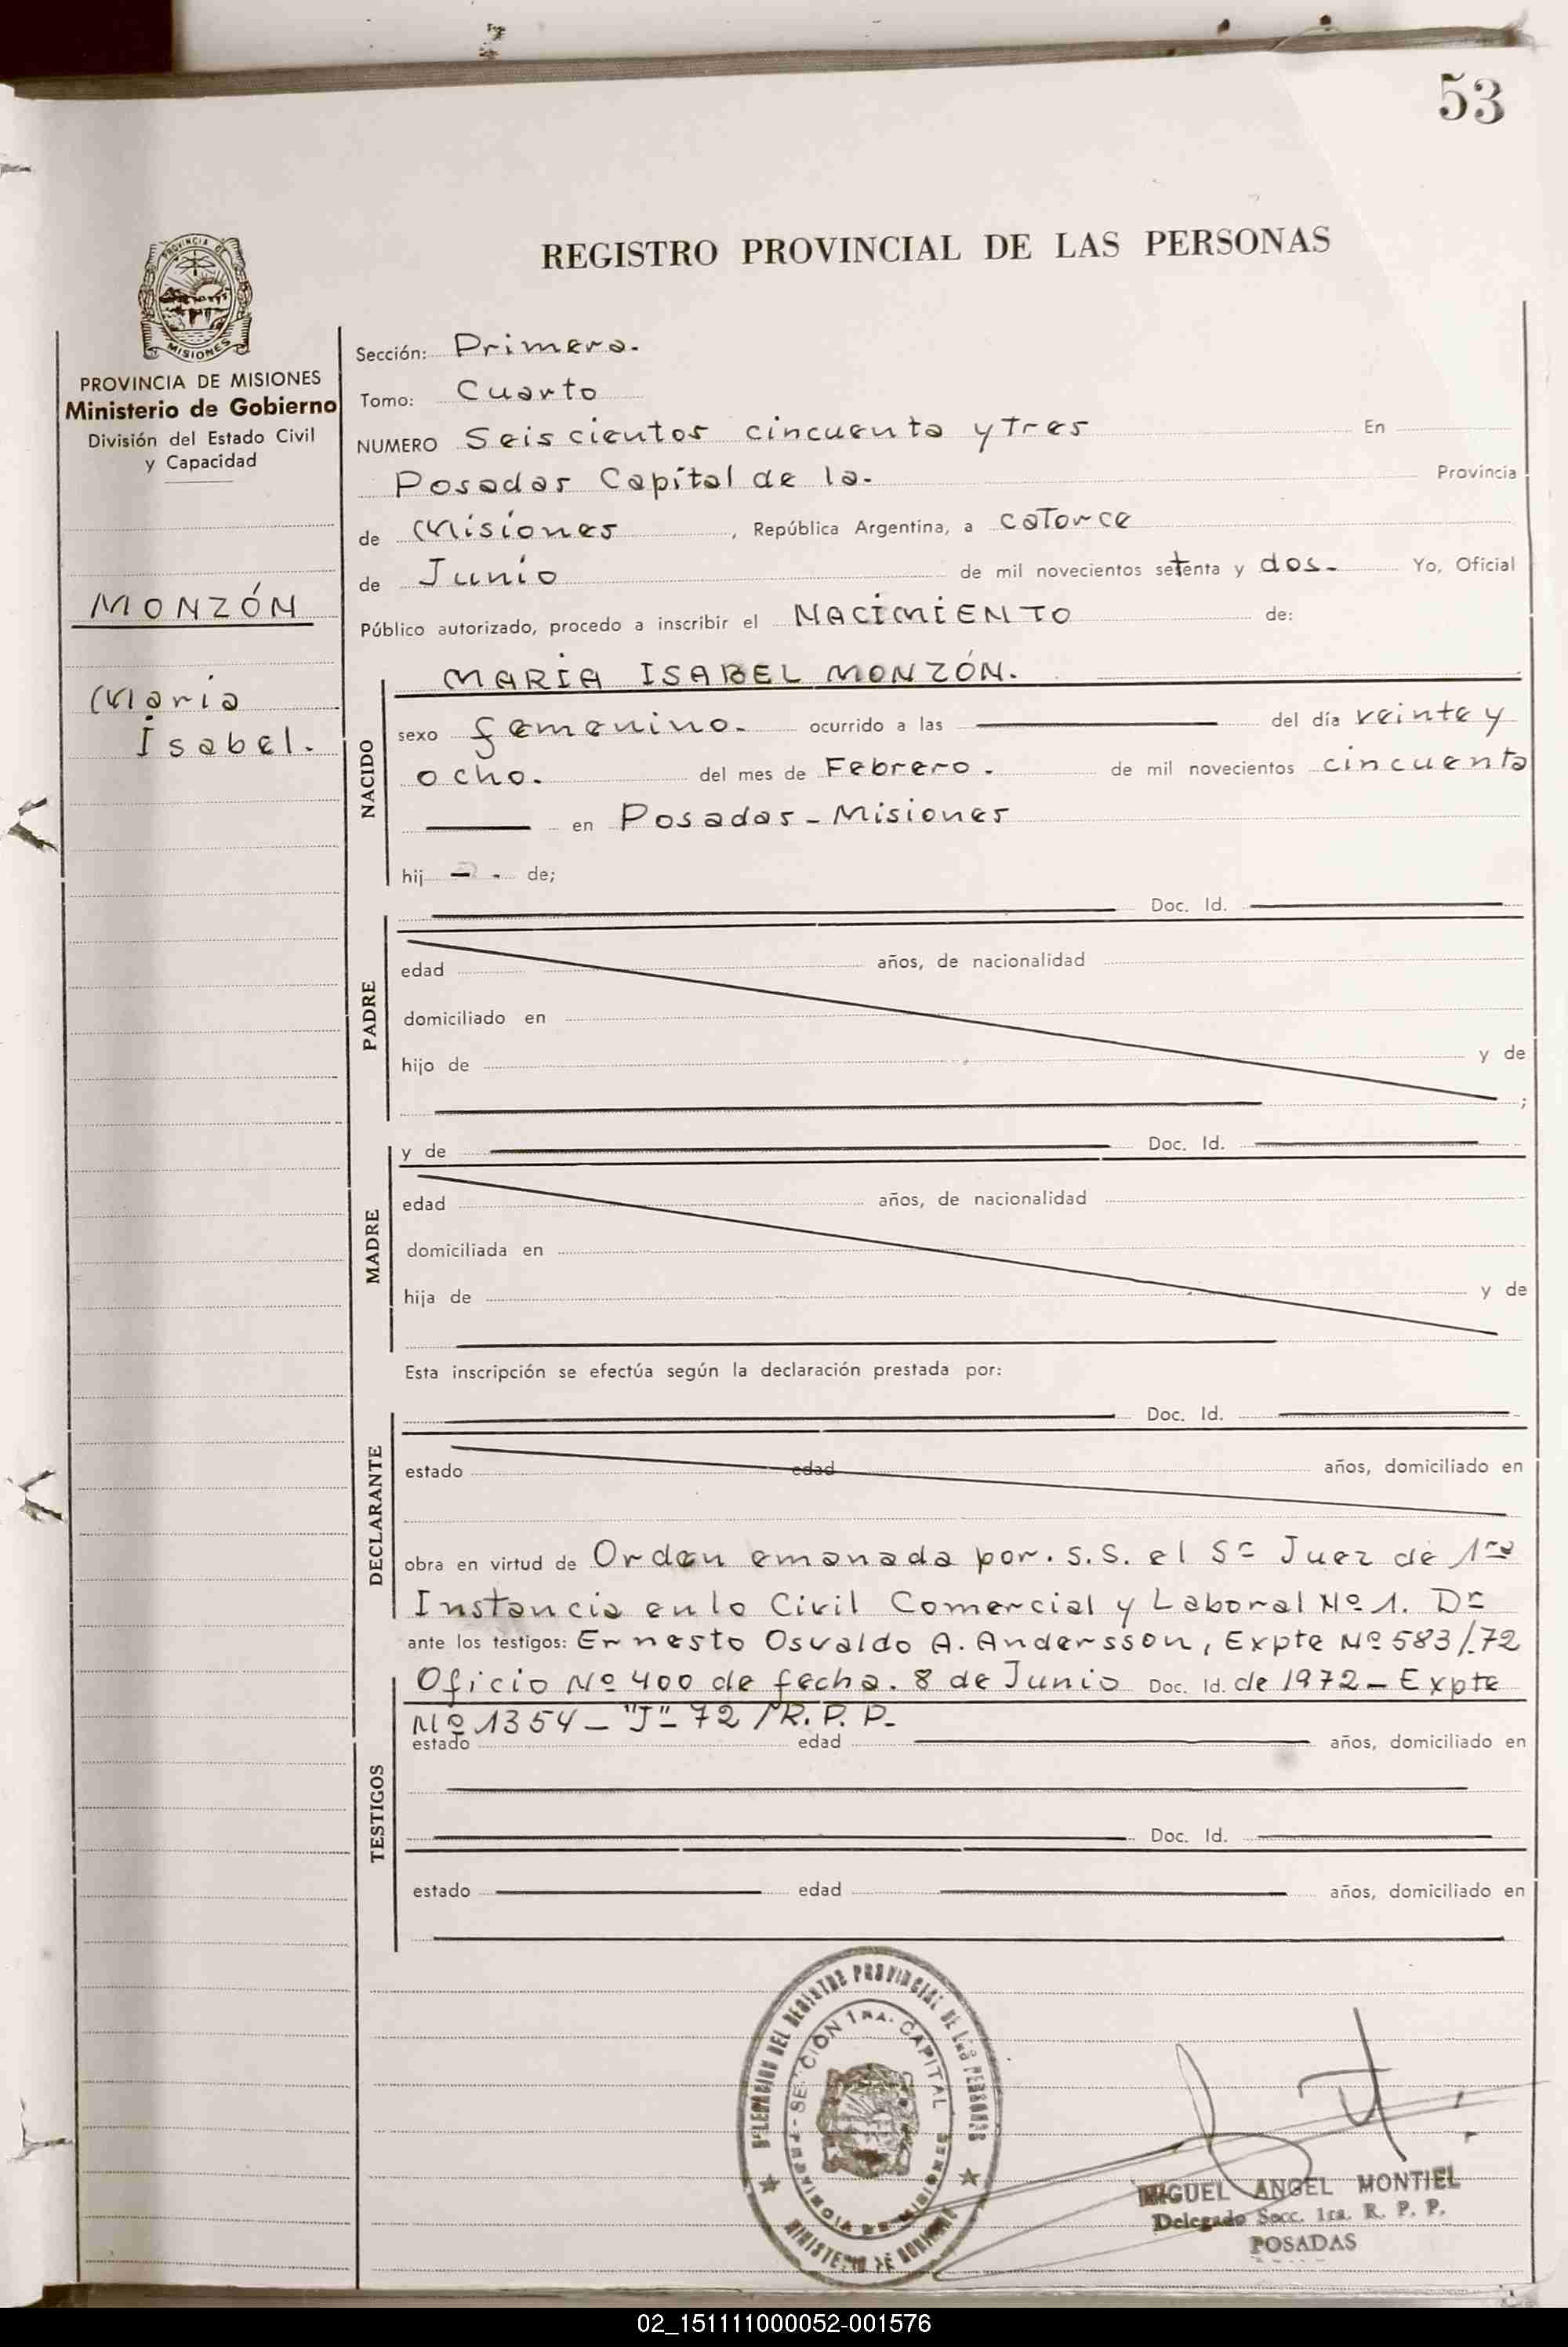 53
REGISTRO PROVINCIAL DE LAS PERSONAS
PROVINCIA DE MISIONES
PROVINCIA DE MISIONES
Ministerio de Gobierno
División del Estado Civil
y Capacidad
MONZÓN
María
Isabel.
Sección: Primera.
Tomo: Cuarto
NUMERO Seiscientos cincuenta y Tres En
Posadas Capital de la. Provincia
de Misiones, República Argentina, a catorce
de Junio de mil novecientos setenta y dos. Yo, Oficial
Público autorizado, procedo a inscribir el NACIMIENTO de:
NACIDO
MARÍA ISABEL MONZÓN.
sexo femenino. ocurrido a las del día veinte y
ocho. del mes de Febrero. de mil novecientos cincuenta
en Posadas - Misiones
hij de;
PADRE
Doc. Id.
edad años, de nacionalidad
domiciliado en
hijo de y de
;
MADRE
y de Doc. Id.
edad años, de nacionalidad
domiciliada en
hija de y de
Esta inscripción se efectúa según la declaración prestada por:
DECLARANTE
Doc. Id.
estado edad años, domiciliado en
obra en virtud de Orden emanada por. S.S. el Sr Juez de 1ra
Instancia en lo Civil Comercial y Laboral Nº 1. Dr
ante los testigos: Ernesto Osvaldo A. Andersson, Expte Nº 583/72
Oficio Nº 400 de fecha. 8 de Junio Doc. Id. de 1972 - Expte
Nº 1354 - "J" - 72 / R. P. P.
TESTIGOS
estado edad años, domiciliado en
Doc. Id.
estado edad años, domiciliado en
DELEGACION DEL REGISTRO PROVINCIAL DE LAS PERSONAS
SECCIÓN 1RA. CAPITAL
PROVINCIA DE MISIONES
MINISTERIO DE GOBIERNO
MIGUEL ANGEL MONTIEL
Delegado Secc. 1ra. R. P. P.
POSADAS
02_151111000052-001576